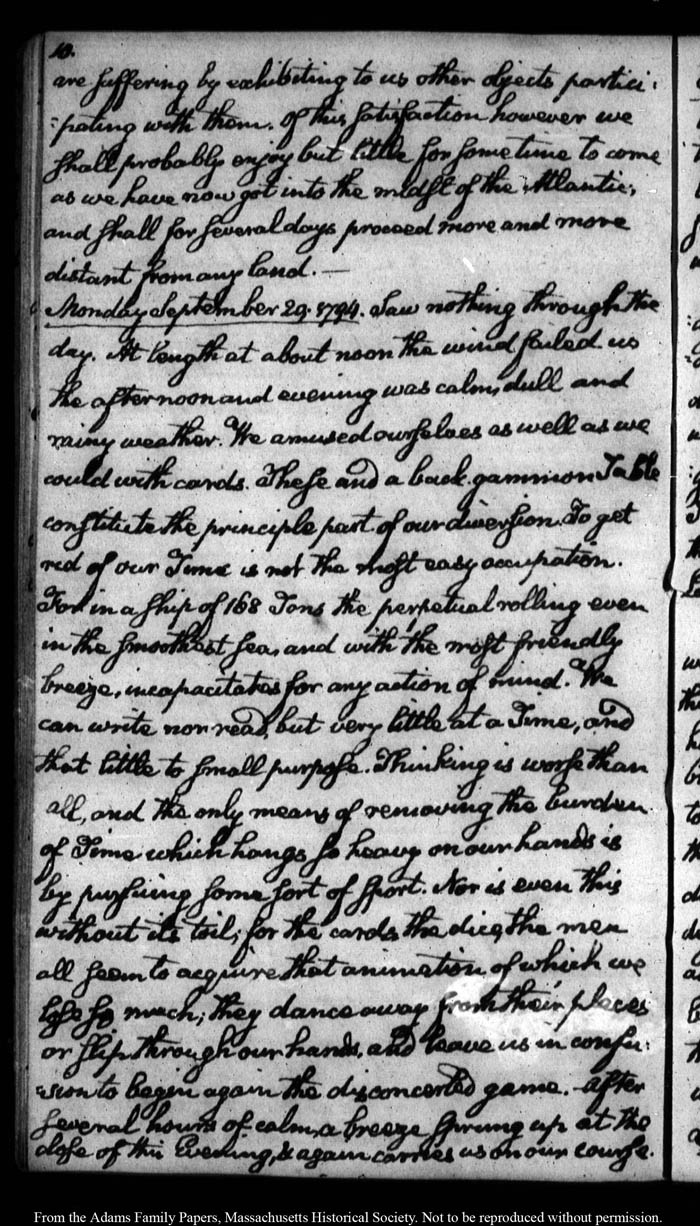 10.
are suffering by exhibiting to us other objects partici:
:pating with them. Of this satisfaction however we
shall probably enjoy but little for some time to come
as we have now got into the midst of the Atlantic,
and shall for several days proceed more and more
distant from any land. —
Monday September 29. 1794. Saw nothing through the
day. At length at about noon the wind failed us
the afternoon and evening was calm, dull and
rainy weather. We amused ourselves as well as we
could with cards. These and a back gammon Table
constitute the principle part of our diversion. To get
rid of our Time is not the most easy occupation.
For in a ship of 168 Tons the perpetual rolling even
in the smoothest sea, and with the most friendly
breeze, incapacitates for any action of mind. We
can write nor read, but very little at a Time, and
that little to small purpose. Thinking is worse than
all, and the only means of removing the burden
of Time which hangs so heavy on our hands is
by pursuing some sort of sport. Nor is even this
without its toil, for the cards, the dice, the men
all seem to acquire that animation of which we
lose so much; they dance away from their places
or slip through our hands, and leave us in confu:
:sion to begin again the disconcerted game. After
several hours of calm, a breeze sprung up at the
close of this Evening, & again carries us on our course.
From the Adams Family Papers, Massachusetts Historical Society. Not to be reproduced without permission.